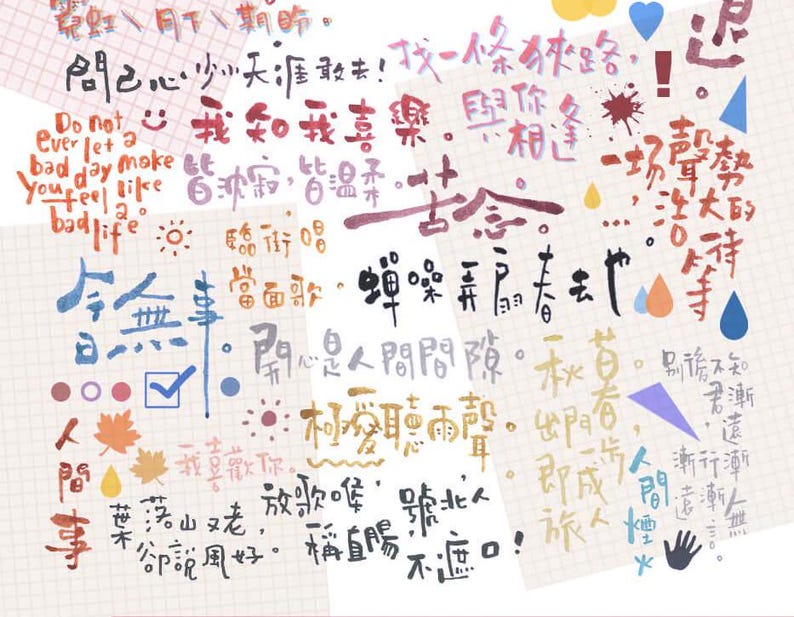 霓虹\月下\期盼。
問己心少小天涯敢去!
找一條狹路,
與你相逢
退。
!
Do not
ever let a
bad day make
You feel like
a
bad life
我知我喜樂。
皆沈寂,皆溫柔。
苦念。
一場聲勢
浩大的
等待
...
臨街唱
當面歌,
今日無事。
蟬噪弄扇春去也。
開心是人間間隙。
極愛聽雨聲。
一春一秋。
出門一步
即成
旅人
別後不知君
漸遠漸無
漸行漸
遠
人間事
我喜歡你。
葉落山又老,
卻說風好。
放歌喉,
稱直腸
號北人
不遮口!
人間煙火